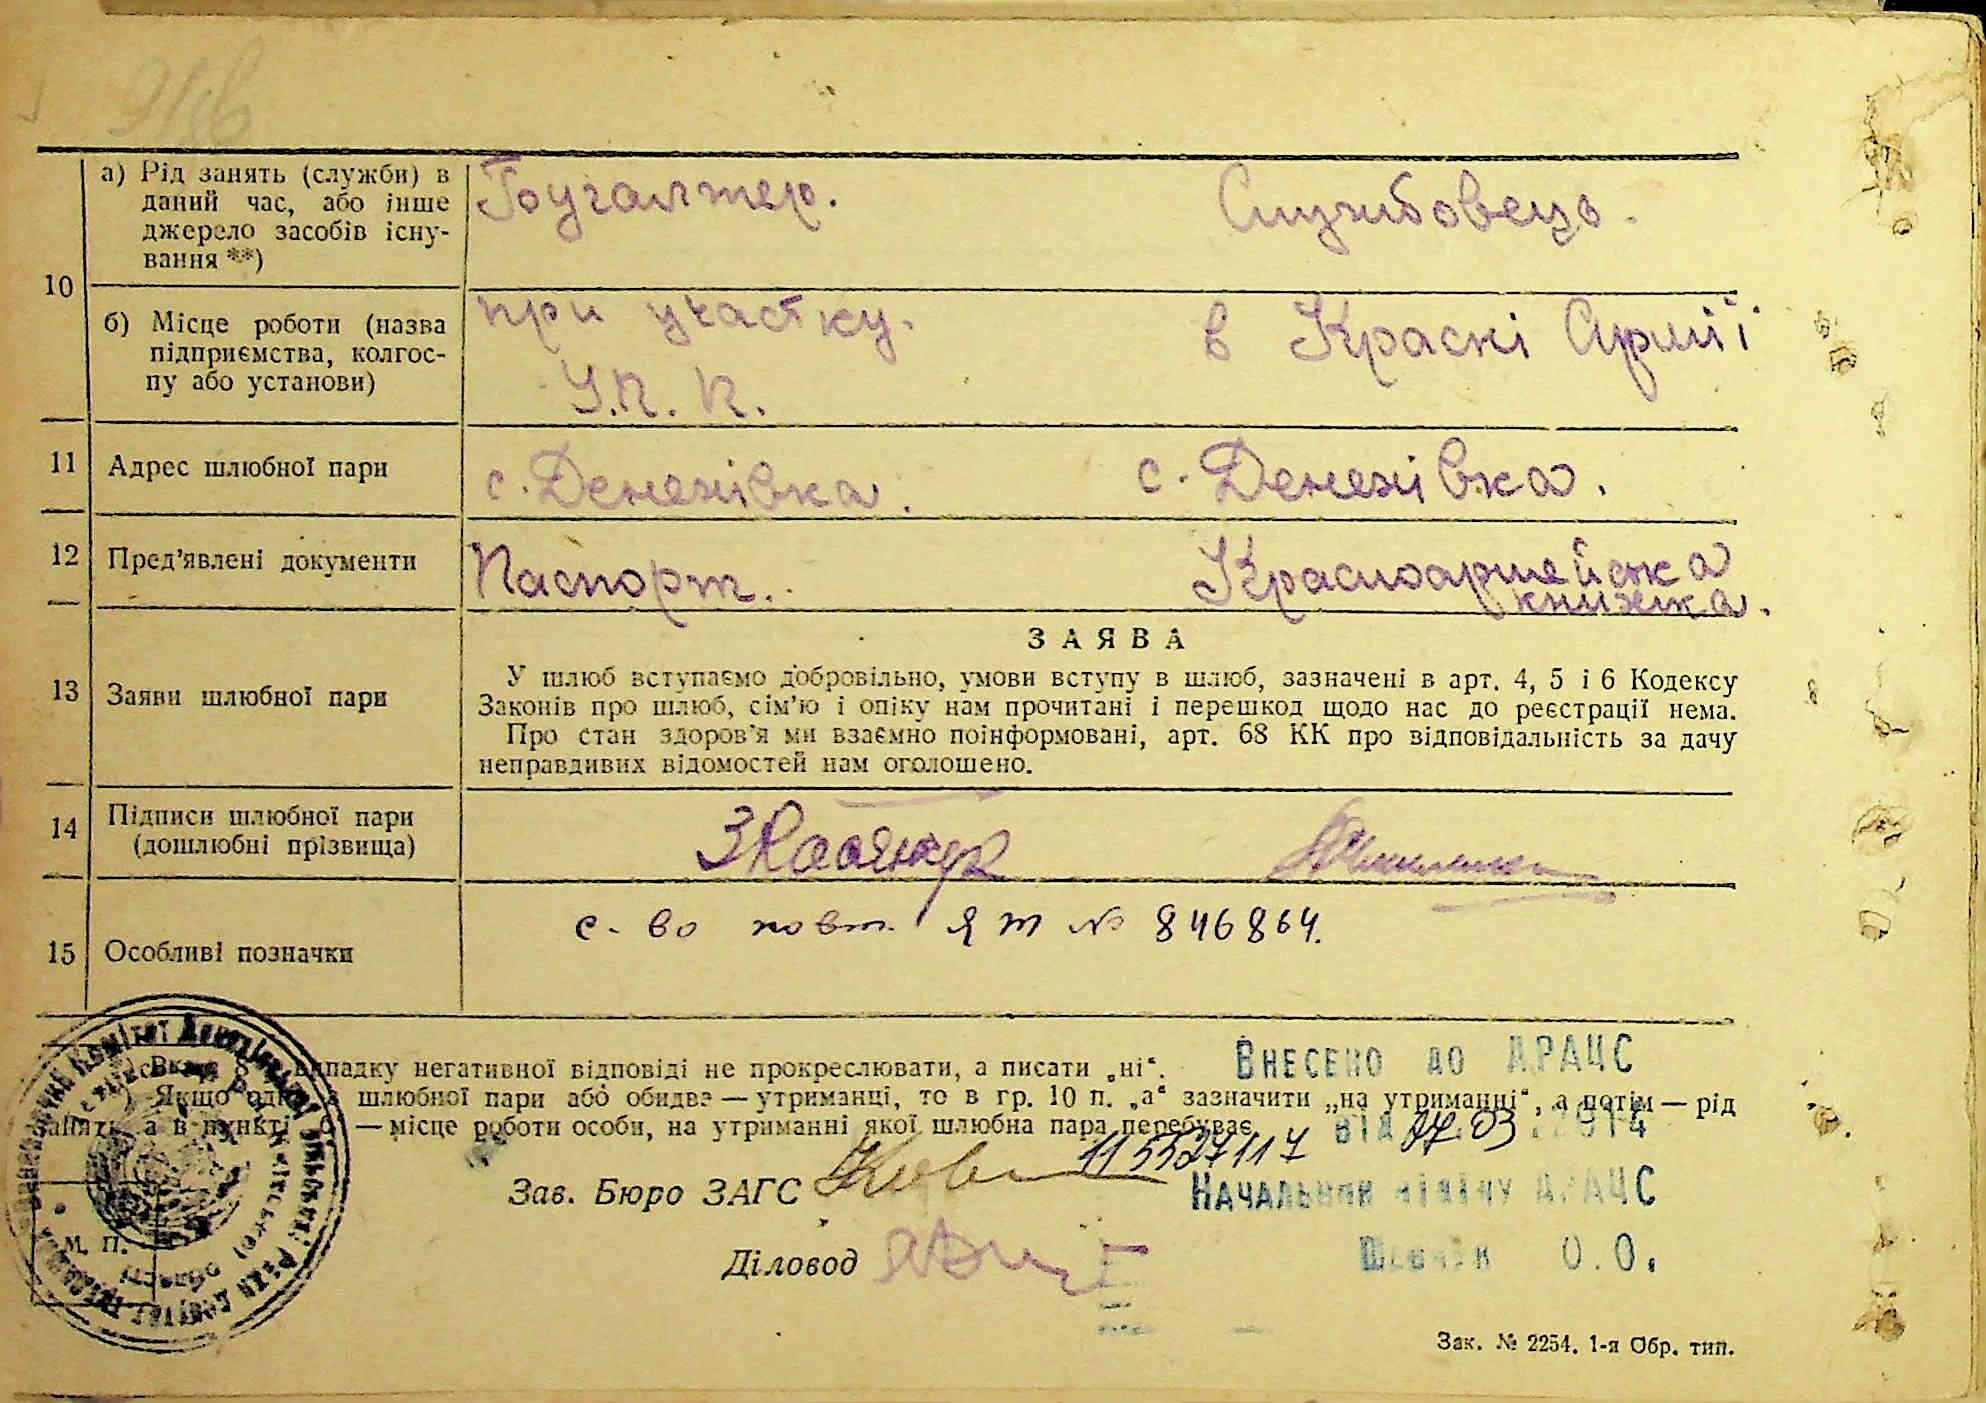 10
а) Рід занять (служби) в
даний час, або інше
джерело засобів існу-
вання **)
Бухгалтер.
Службовець.
б) Місце роботи (назва
підприємства, колгос-
пу або установи)
при участку.
У.П.П.
в Красні Армії
11
Адрес шлюбної пари
с. Денежівка.
с. Денежівка.
12
Пред’явлені документи
Паспорт.
Красноармейська
книжка.
13
Заяви шлюбної пари
ЗАЯВА
У шлюб вступаємо добровільно, умови вступу в шлюб, зазначені в арт. 4, 5 і 6 Кодексу
Законів про шлюб, сім’ю і опіку нам прочитані і перешкод щодо нас до реєстрації нема.
Про стан здоров’я ми взаємно поінформовані, арт. 68 КК про відповідальність за дачу
неправдивих відомостей нам оголошено.
14
Підписи шлюбної пари
(дошлюбні прізвища)
15
Особливі позначки
с-во повт. ЯТ № 846864.
випадку негативної відповіді не прокреслювати, а писати „ні“.
Якщо шлюбної пари або обидва — утриманці, то в гр. 10 п. „а“ зазначити „на утриманні“, а потім — рід
а в пункті — місце роботи особи, на утриманні якої шлюбна пара перебуває
Внесено до ДРАЦС
від 07.03.2014
115527117
Зав. Бюро ЗАГС
Начальник відділу ДРАЦС
О.О.
Діловод
М. П.
Зак. № 2254. 1-я Обр. тип.